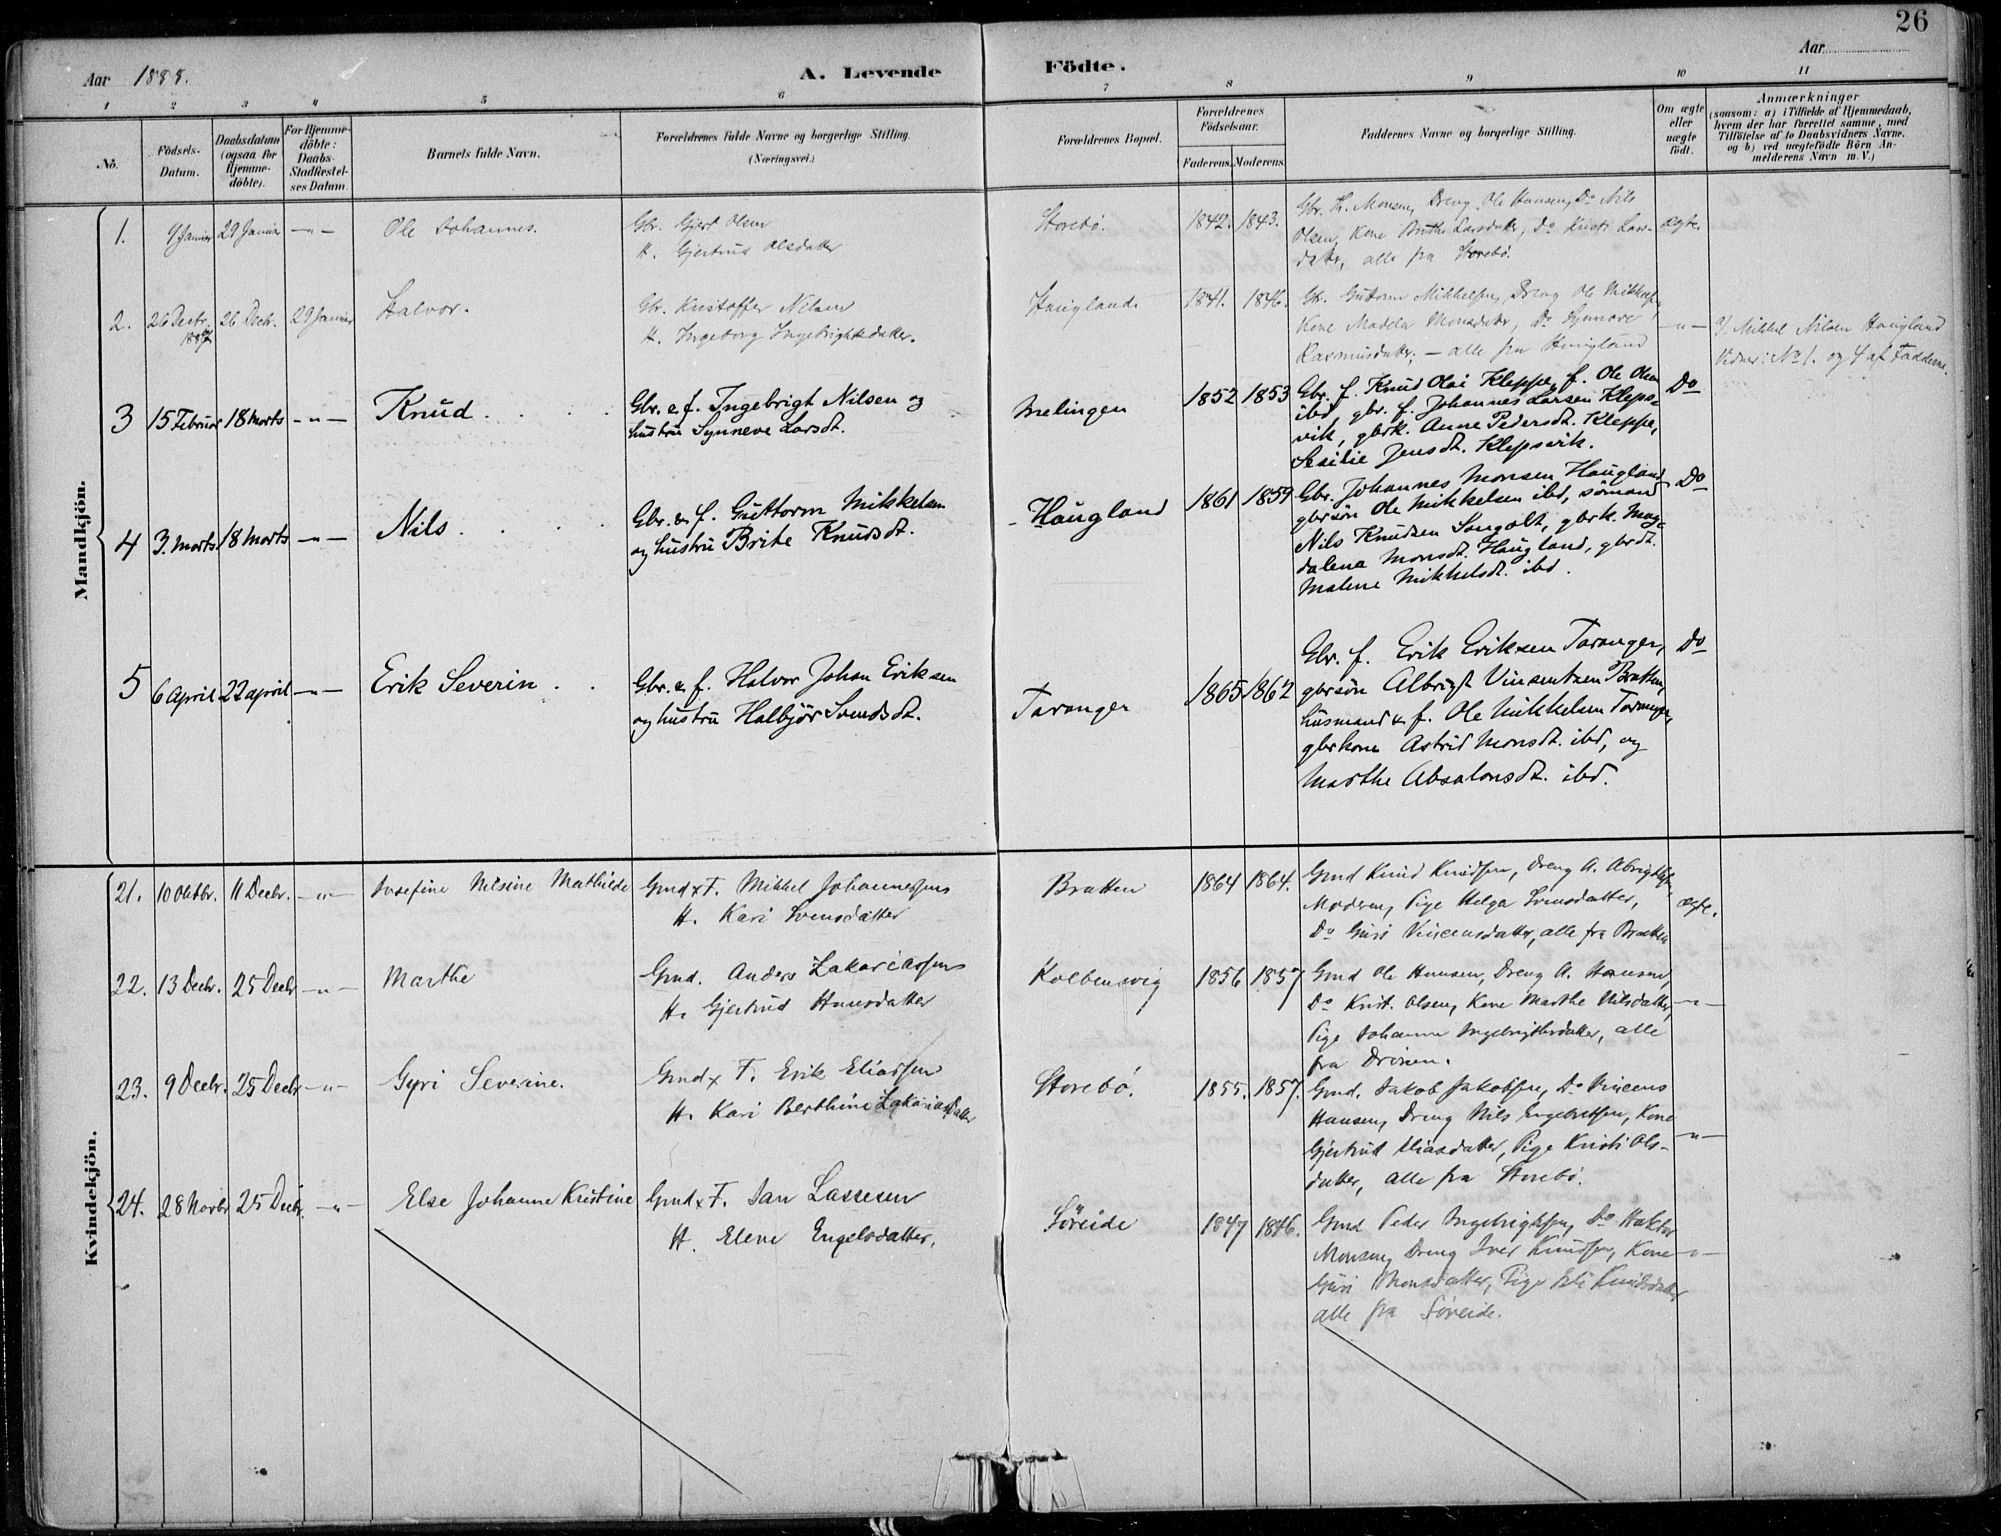 26
Aar 1888. A. Levende Födte. Aar
1 2 3 4 5 6 7 8 9 10 11
No. Födsels-Datum. Daabsdatum (ogsaa for Hjemmedöbte). For Hjemmedöbte: Daabs-Stadfæstelses Datum. Barnets fulde Navn. Forældrenes fulde Navne og borgerlige Stilling. (Næringsvei.) Forældrenes Bopæl. Forældrenes Födselsaar. Faderens. Moderens. Faddernes Navne og borgerlige Stilling. Om ægte eller uægte födt. Anmærkninger (saasom: a) i Tilfælde af Hjemmedaab, hvem der har forrettet samme, med Tilföielse af to Daabsvidners Navne. og b) ved uægtefödte Börn Anmelderens Navn m. V.)
Mandkjön.
1. 9 Januar 29 Januar -"- Ole Johannes. Gbr. Gjert Olsen
H. Gjertrud Olsdatter
Storebö. 1842. 1843. Gbr. H. Monsen, Dreng Ole Hansen, Do Nils
Olsen, Kone Brithe Larsdatter, Do Kristi Lars-
datter, alle fra Storebö. ægte.
2. 26 Decbr. 1887 26 Decbr. 29 Januar Halvor. Gbr. Kristoffer Nilsen
H. Ingeborg Ingebrightsdatter.
Haugland. 1841. 1846. Gbr. Guttorm Mikkelsen, Dreng Ole Mikkelsen,
Kone Madela Monsdatter, Do Synneve
Rasmusdatter. - alle fra Haugland -"-
v/ Mikkel Nilsen Haugland
Vidner: No 1. og 4 af Fadderne.
3 15 Februar 18 Marts -"- Knud. Gbr. & f. Ingebrigt Nilsen og
hustru Synneve Larsdt.
Melingen 1852 1853 Gbr. f. Knud Olai Kleppe, f. Ole Olsen
ibd, gbr. f. Johannes Larsen Kleps-
vik, gbrk. Anne Pedersdt. Kleppe,
Sesilie Jensdt. Klepsvik. Do
4 3. Marts 18 Marts -"- Nils. Gbr. & f. Guttorm Mikkelsen
og hustru Brite Knudsdt.
Haugland 1861 1859 Gbr. Johannes Monsen Haugland
gbrsön Ole Mikkelsen ibd, sömand
Nils Knudsen Sangolt, gbrk. Mag-
dalena Monsdt. Haugland, gbrdt.
Malene Mikkelsdt. ibd. Do
5 6 April 22 april -"- Erik Severin. Gbr. & f. Halvor Johan Eriksen
og hustru Halbjör Svendsdt.
Taranger 1865 1862 Gbr. f. Erik Eriksen Taranger,
gbrsön Albrigt Vinsentsen Bratten,
husmand & f. Ole Mikkelsen Taranger,
gbrkone Astrid Monsdt. ibd, og
Marthe Absalonsdt. ibd. Do
Kvindekjön.
21. 10 Oktbr. 11 Decbr. -"- Josefine Nilsine Mathilde Gmd x F. Mikkel Johannessen
H. Kari Svensdatter
Bratten 1864 1864. Gmd Knud Knudsen, Dreng A. Abrigtsen,
Moderen, Pige Helga Svensdatter,
Do Guri Vincensdatter, alle fra Bratten ægte.
22. 13 Decbr. 25 Decbr -"- Marthe Gmd. Anders Zakariassen
H. Gjertrud Hansdatter
Kolbensvig 1856 1857 Gmd Ole Hansen, Dreng A. Hansen,
Do Krist. Olsen, Kone Marthe Nilsdatter,
Pige Johanna Ingebrigtsdatter, alle
fra Drönen. -"-
23. 9 Decbr. 25 Decbr -"- Gyri Severine. Gmd x F. Erik Eliassen
H. Kari Berthine Zakariasdatter
Storebö. 1855. 1857. Gmd. Jakob Jakobsen, Do Vincens
Hansen, Dreng Nils Engelsen, Kone
Gjertrud Eliasdatter, Pige Kristi Ols-
datter, alle fra Storebö. -"-
24. 28 Novbr 25 Decbr. -"- Else Johanne Kristine Gmd x F. Jan Lassesen
H. Elene Engelsdatter.
Söreide 1847 1846. Gmd Peder Ingebrigtsen, Do Haktor
Monsen, Dreng Iver Knudsen, Kone
Guri Monsdatter, Pige Eli Knudsdatter
alle fra Söreide. -"-